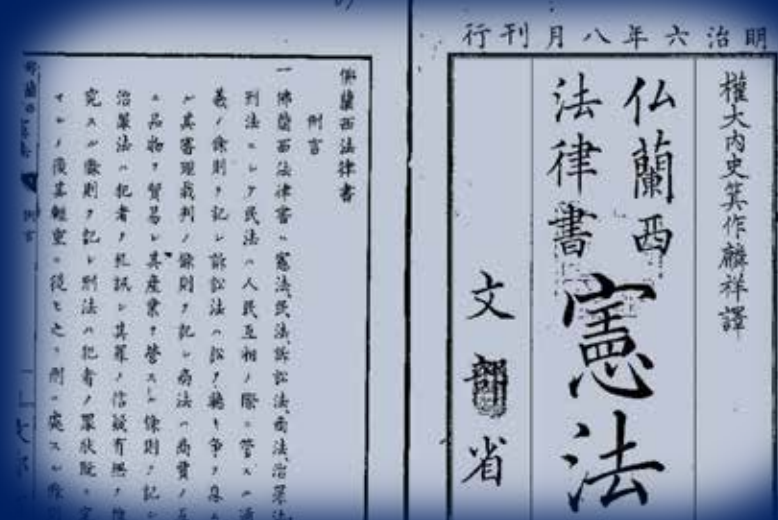 明治六年八月刊行
權大内史箕作麟祥譯
仏蘭西
法律書
憲法
文部省
佛蘭西法律書
例言
一佛蘭西法律書ハ憲法、民法、訴訟法、商法、治罪法、
刑法ニシテ民法ハ人民互相ノ際ニ管スル通
義ノ條則ヲ記シ訴訟法ハ訟ヲ聽キ爭ヲ息
ル其審理裁判ノ條則ヲ記シ商法ハ商賈ノ互
ニ品物ヲ貿易シ其産業ヲ營スル條則ヲ記シ
治罪法ハ犯者ヲ糺訊シ其罪ノ信疑有無ヲ推
究スル條則ヲ記シ刑法ハ犯者ノ罪状既ニ定
マルノ後其輕重ニ從ヒ之ヲ刑ニ處スル條則
例言